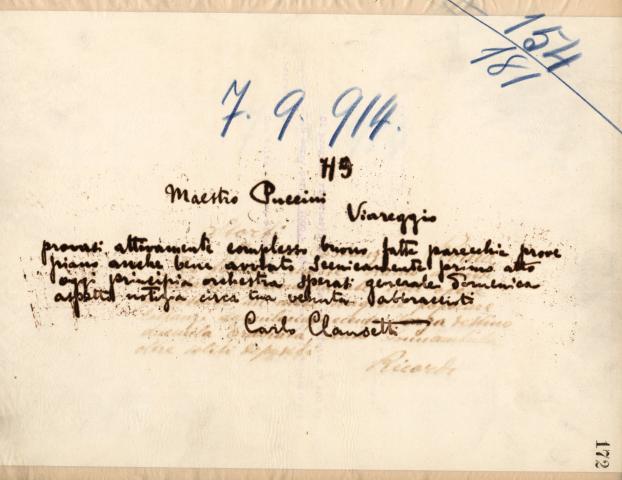 154
181
7. 9. 914.
H9
Maestro Puccini
Viareggio
provasi attivamente complesso buono fatte parecchie prove
piano anche bene avviato scenicamente primo atto
oggi principia orchestra sperasi generale Domenica
aspetto notizia circa tua venuta abbraccioti
Carlo Clausetti
Ricordi
172